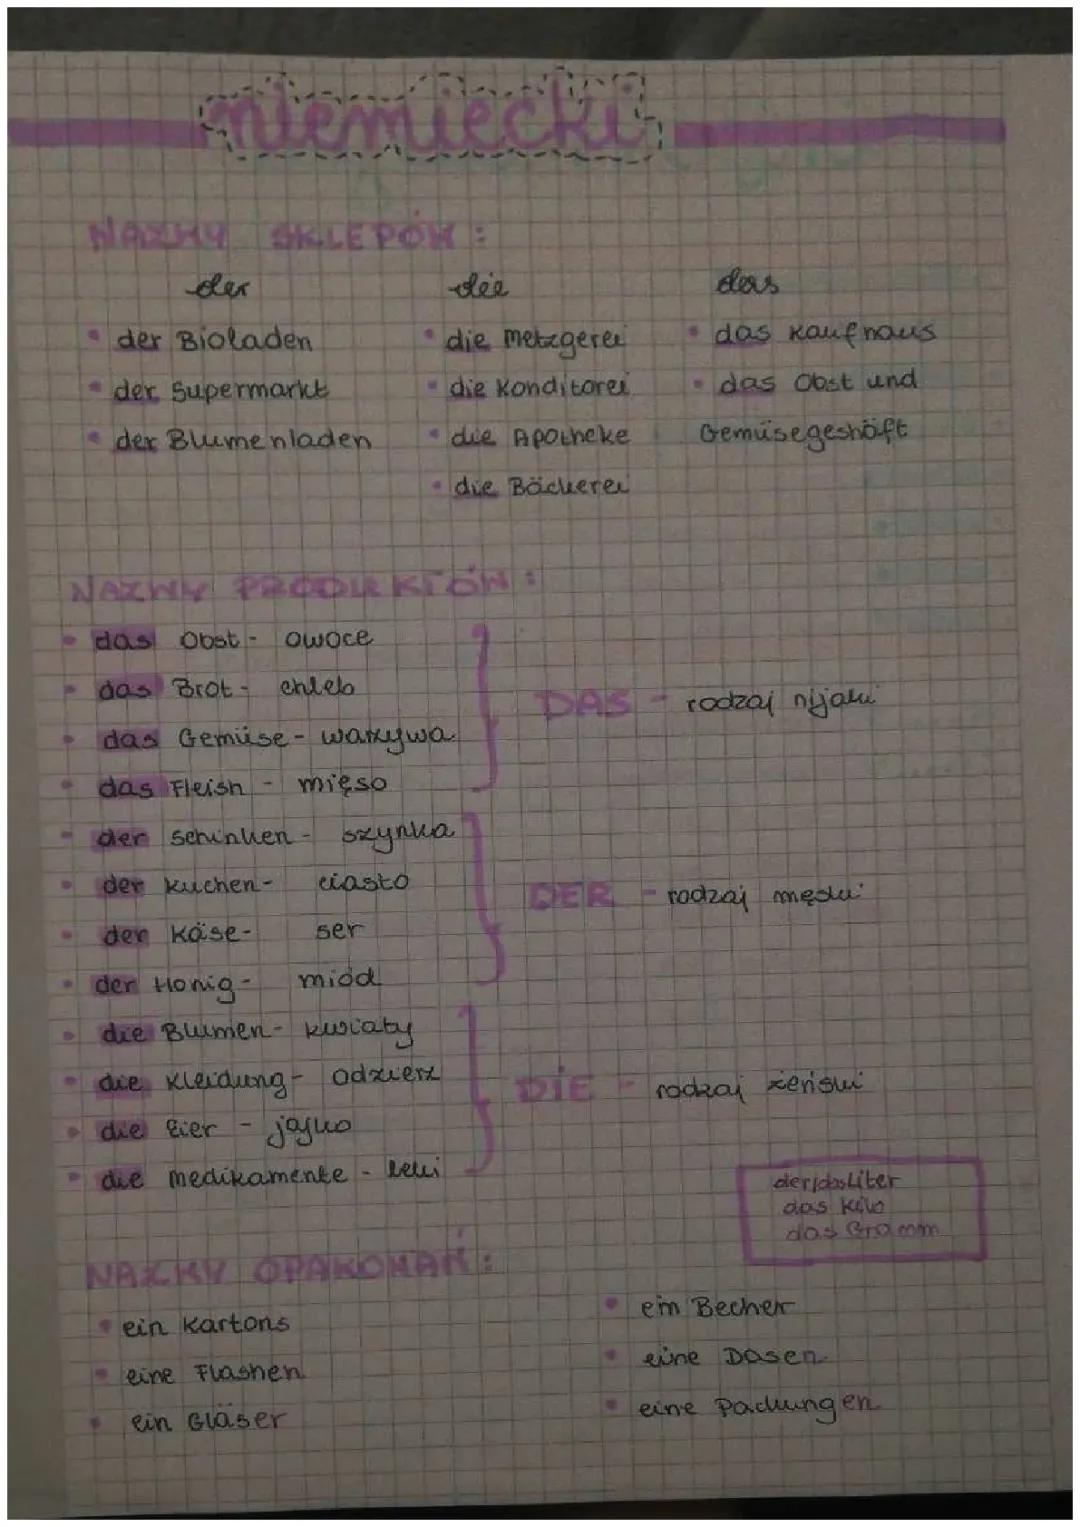 niemiecki
NAZWY SKLEPÓW:
der die das
• der Bioladen • die Metzgerei • das Kaufhaus
• der Supermarkt • die Konditorei • das Obst und
• der Blumenladen • die Apotheke Gemüsegeshäft
• die Bäckerei
NAZWY PRODUKTÓW:
• das Obst - owoce
• das Brot - chleb
• das Gemüse - warzywa
DAS - rodzaj nijaki
• das Fleish - mięso
• der Schinken - szynka
• der Kuchen - ciasto
DER - rodzaj męski
• der Käse - ser
• der Honig - miód
• die Blumen - kwiaty
• die Kleidung - odzież
DIE - rodzaj żeński
• die Eier - jajko
• die Medikamente - leki
der/das Liter
das Kilo
das Gramm
NAZWY OPAKOWAŃ:
• ein Kartons • ein Becher
• eine Flashen • eine Dosen
• ein Gläser • eine Packungen